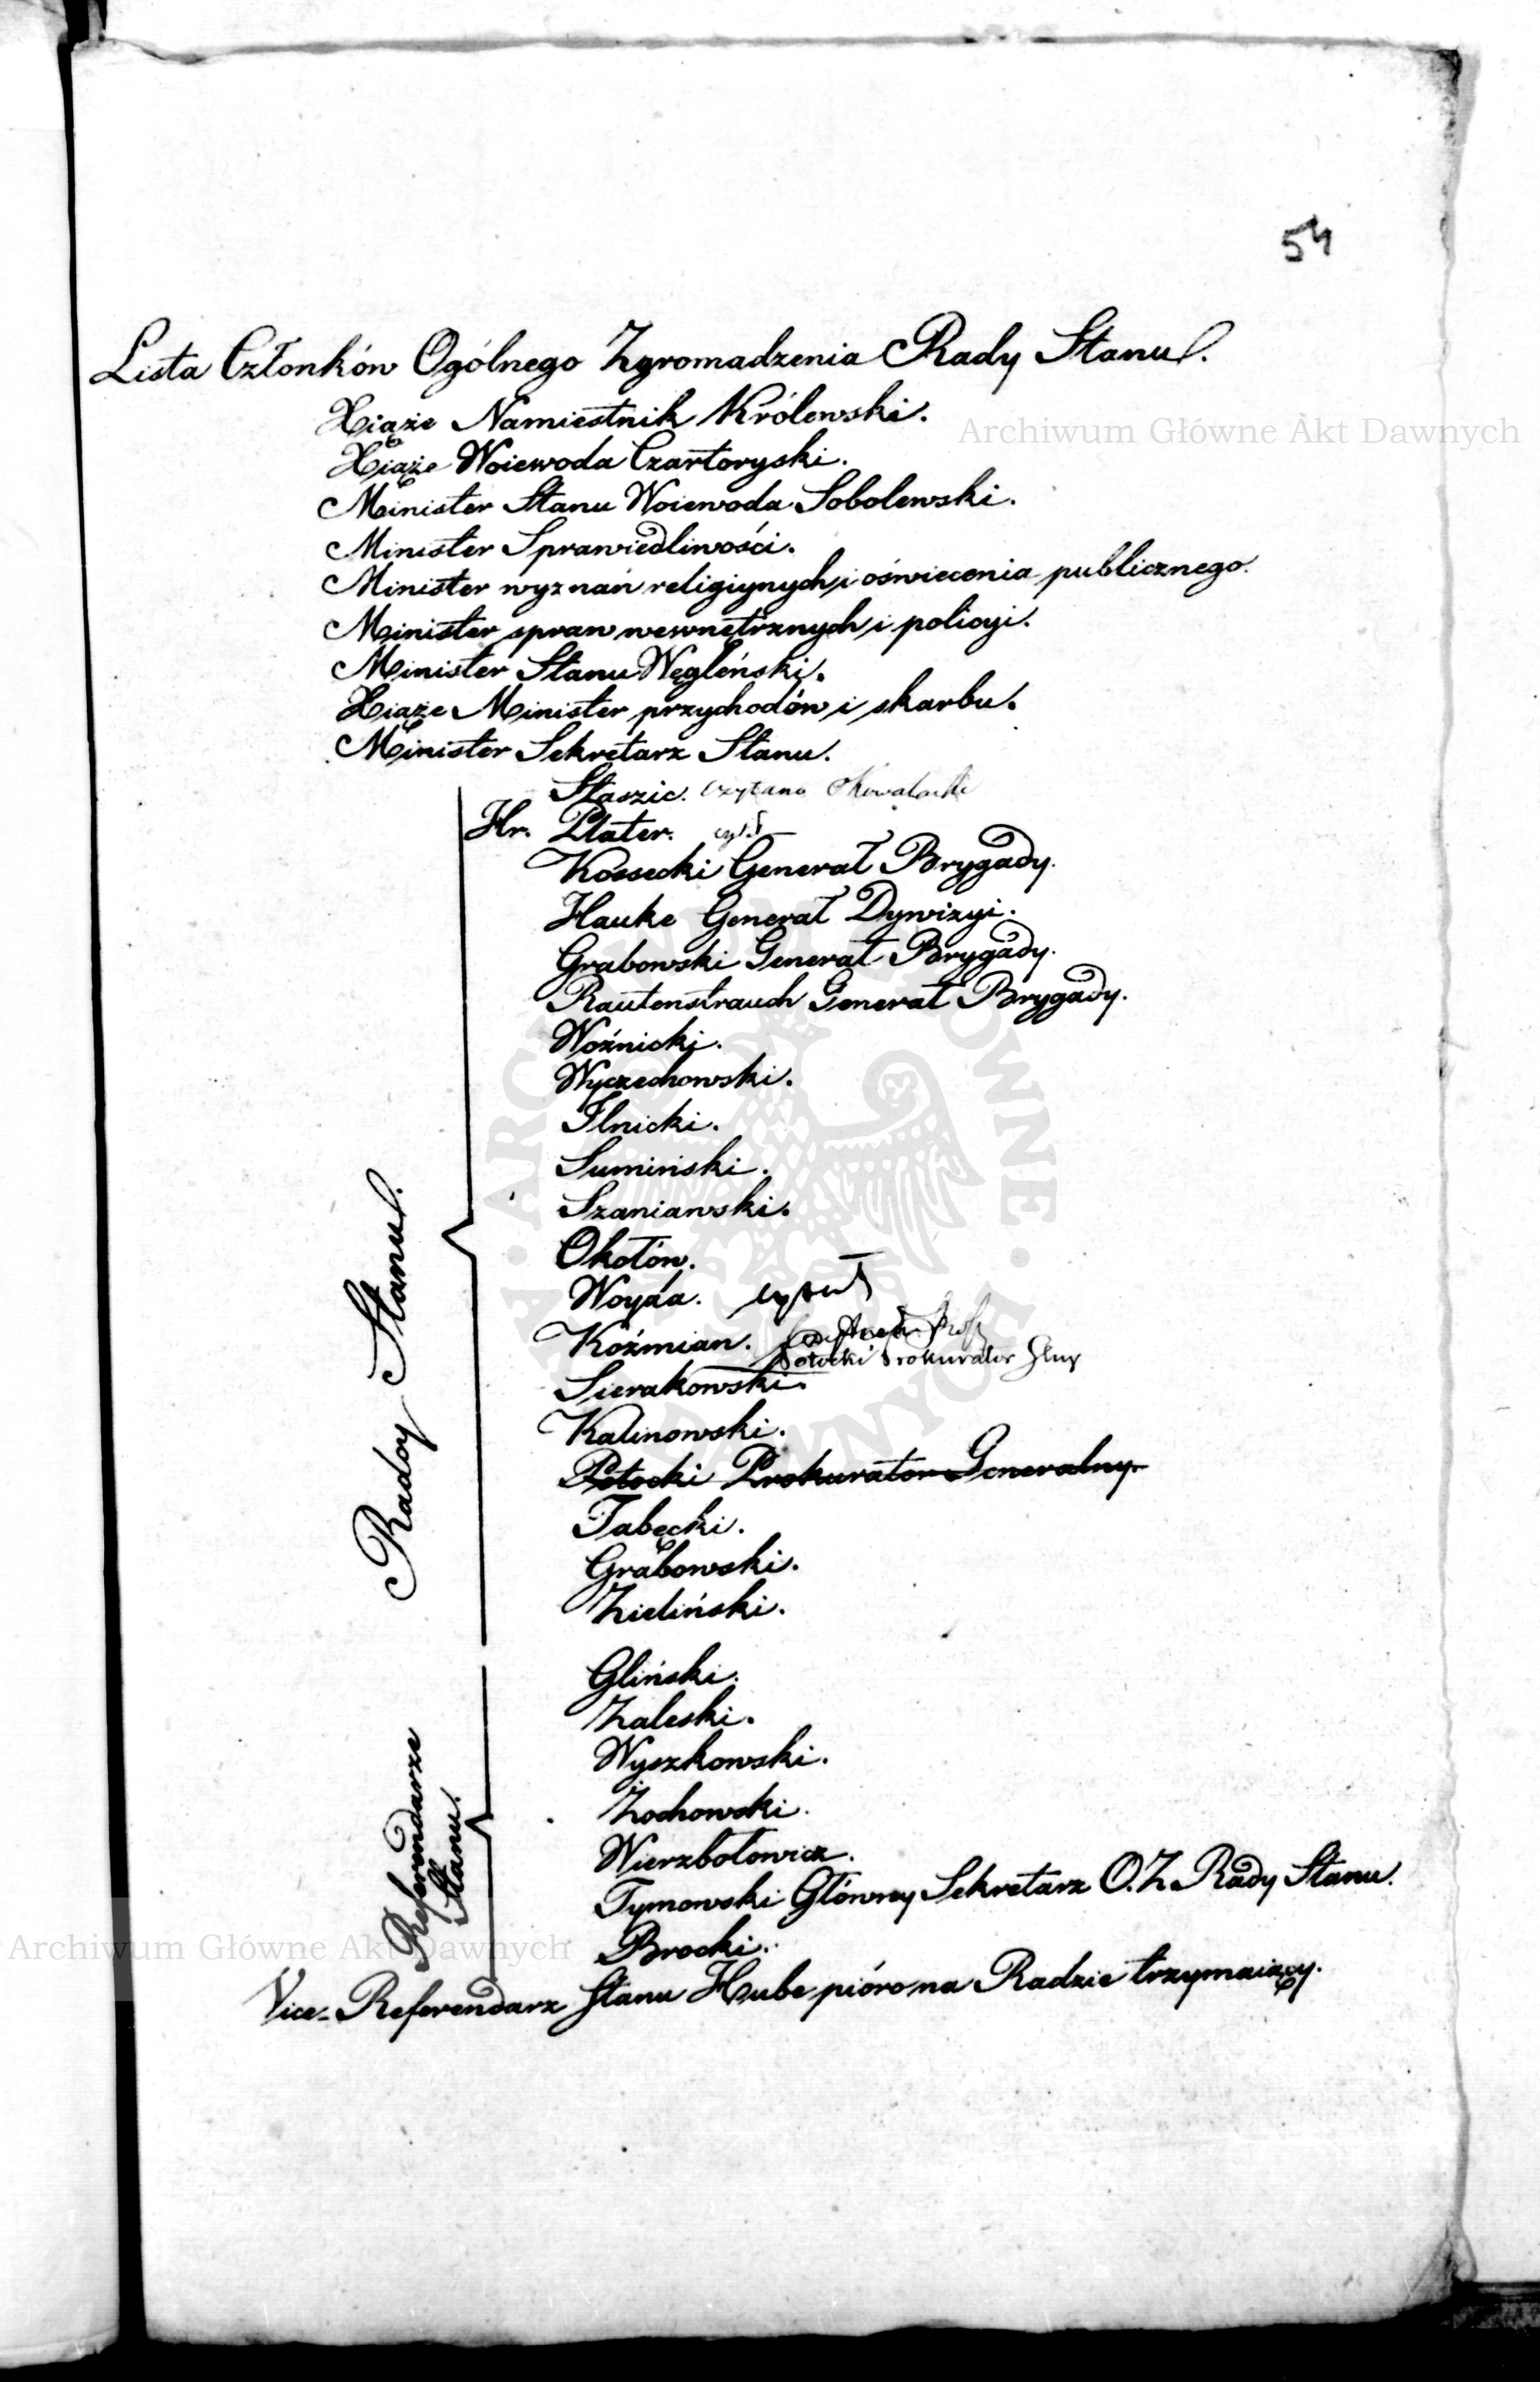 54
Lista Członków Ogólnego Zgromadzenia Rady Stanu.
Xiąże Namiestnik Królewski.
Archiwum Główne Akt Dawnych
Xiąże Woiewoda Czartoryski.
Minister Stanu Woiewoda Sobolewski.
Minister Sprawiedliwości.
Minister wyznań religiynych i oświecenia publicznego.
Minister spraw wewnętrznych i policyi.
Minister Stanu Węgleński.
Xiąże Minister przychodów i skarbu.
Minister Sekretarz Stanu.
Radcy Stanu.
Staszic. czytano
Hr. Plater.
Kossecki Generał Brygady.
Hauke Generał Dywizyi.
Grabowski Generał Brygady.
Rautenstrauch Generał Brygady.
Woźnicki.
Wyczechowski.
Ilnicki.
Sumiński.
Szaniawski.
Okołów.
Woyda. czytał
Koźmian.
Potocki Prokurator
Sierakowski.
Kalinowski.
Potocki Prokurator Generalny.
Tabęcki.
Grabowski.
Zieliński.
Referendarze
Stanu.
Gliński.
Zaleski.
Wyszkowski.
Żochowski.
Wierzbołowicz.
Tymowski Główny Sekretarz O. Z. Rady Stanu.
Brocki.
Archiwum Główne Akt Dawnych
Vice-Referendarz Stanu Hube pióro na Radzie trzymaiący.
ARCHIWUM GŁÓWNE AKT DAWNYCH